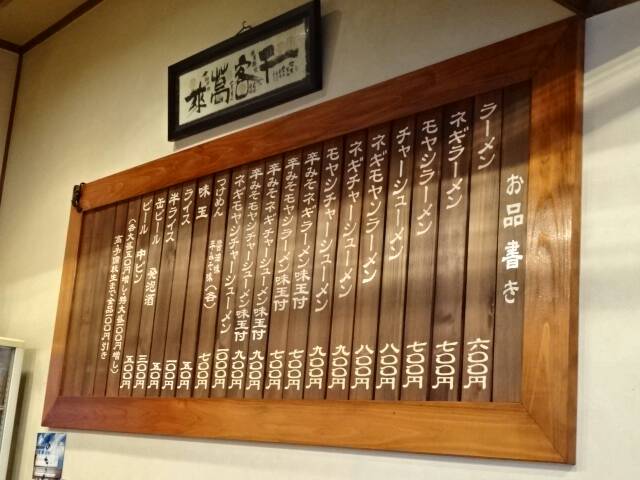 千客萬来
お品書き
ラーメン 六〇〇円
ネギラーメン 七〇〇円
モヤシラーメン 七〇〇円
チャーシューメン 八〇〇円
ネギモヤシラーメン 八〇〇円
ネギチャーシューメン 九〇〇円
モヤシチャーシューメン 九〇〇円
辛みそネギラーメン味玉付 七〇〇円
辛みそモヤシラーメン味玉付 七〇〇円
辛みそネギチャーシューメン味玉付 九〇〇円
辛みそモヤシチャーシューメン味玉付 九〇〇円
ネギモヤシチャーシューメン 一〇〇〇円
つけめん (各) 七〇〇円
味玉
ライス
半ライス
缶ビール
ビール 中ビン 五〇〇円
発泡酒 三〇〇円
(各大盛五〇円増し・特大盛一〇〇円増し)